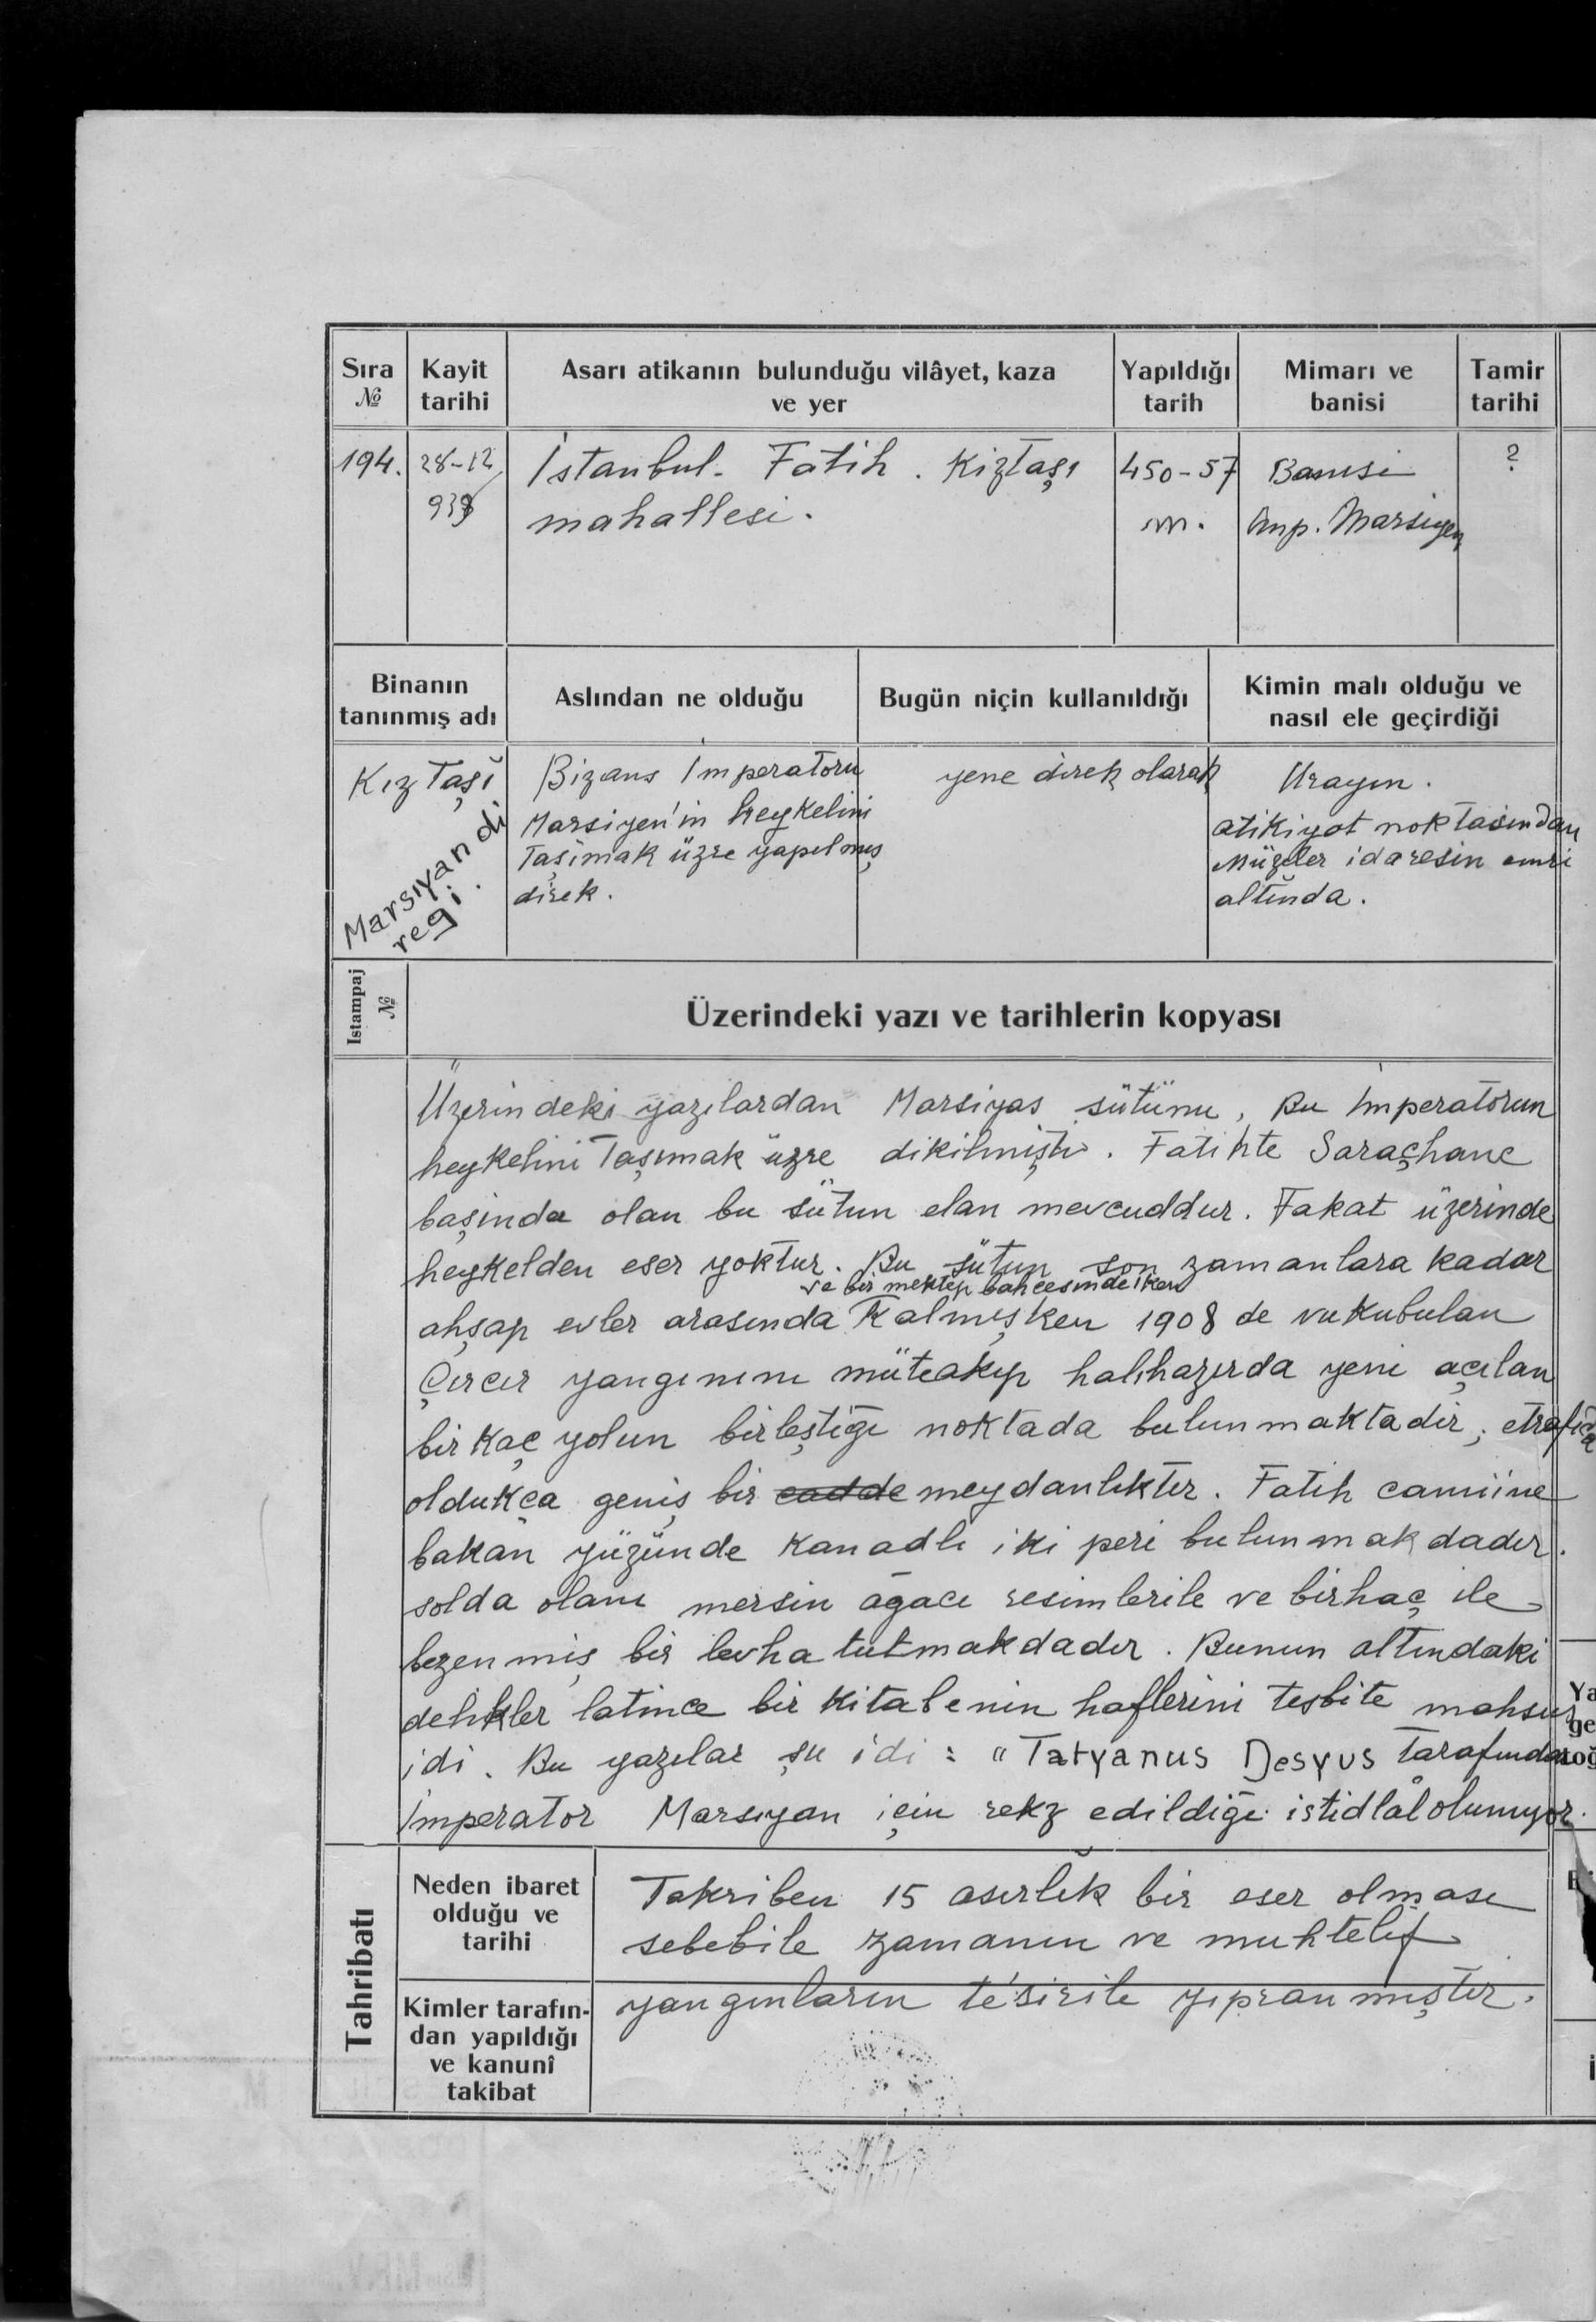 Sıra № Kayit tarihi Asarı atikanın bulunduğu vilâyet, kaza ve yer Yapıldığı tarih Mimarı ve banisi Tamir tarihi
194. 28-12 İstanbul. Fatih. Kiztaşı 450-57 Banisi ?
939 mahallesi. m. İmp. Marsiyen
Binanın tanınmış adı
Aslından ne olduğu
Bugün niçin kullanıldığı
Kimin malı olduğu ve nasıl ele geçirdiği
Kız Taşı
Marsıyan di
regi.
Bizans İmperatoru
Marsiyen'in heykelini
Taşimak üzre yapılmış
direk.
yene direk olarak
Urayın.
atikiyat noktasından
Müzeler idaresin emri
altında.
Istampaj №
Üzerindeki yazı ve tarihlerin kopyası
Üzerindeki yazılardan Marsiyas sütünu, Bu İmperatorun
heykelini Taşımak üzre dikilmişti. Fatihte Saraçhane
başında olan bu sütun elan mevcuddur. Fakat üzerinde
heykelden eser yoktur. Bu sütun son zamanlara kadar
ve bir mektep bahcesinde iken
ahşap evler arasında Kalmışken 1908 de vukubulan
Çırcır yangınını müteakıp halihazırda yeni açılan
bir kaç yolun birleştiği noktada bulunmaktadir;
oldukça geniş bir cadde meydanlıktır. Fatih camiine
bakan yüzünde kanadlı iki peri bulunmakdadır.
solda olanı mersin ağacı resimlerile ve birhaç ile
bezenmiş bir levha tutmakdadır. Bunun altındaki
delikler latince bir kitabenin haflerini tesbite mahsus
idi. Bu yazılar şu idi: "Tatyanus Desyus Tarafından
İmperator Marsıyan için rekz edildiği istidlâl olunuyor.
Tahribatı
Neden ibaret olduğu ve tarihi
Takriben 15 asırlık bir eser olması
sebebile zamanın ve muhtelif
Kimler tarafın-
dan yapıldığı
ve kanunî
takibat
yangınların te'sirile yıpranmıştır.